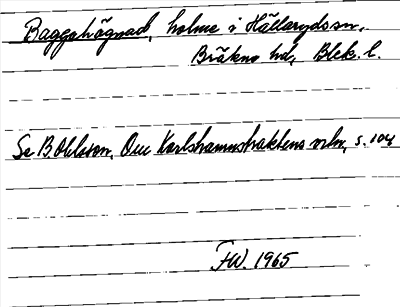 Baggahögnad, holme i Hällaryds sn,
Bräkne hd, Blek. l.
Se B. Ohlsson, Om Karlshamnstraktens ortn, s. 104
FW. 1965